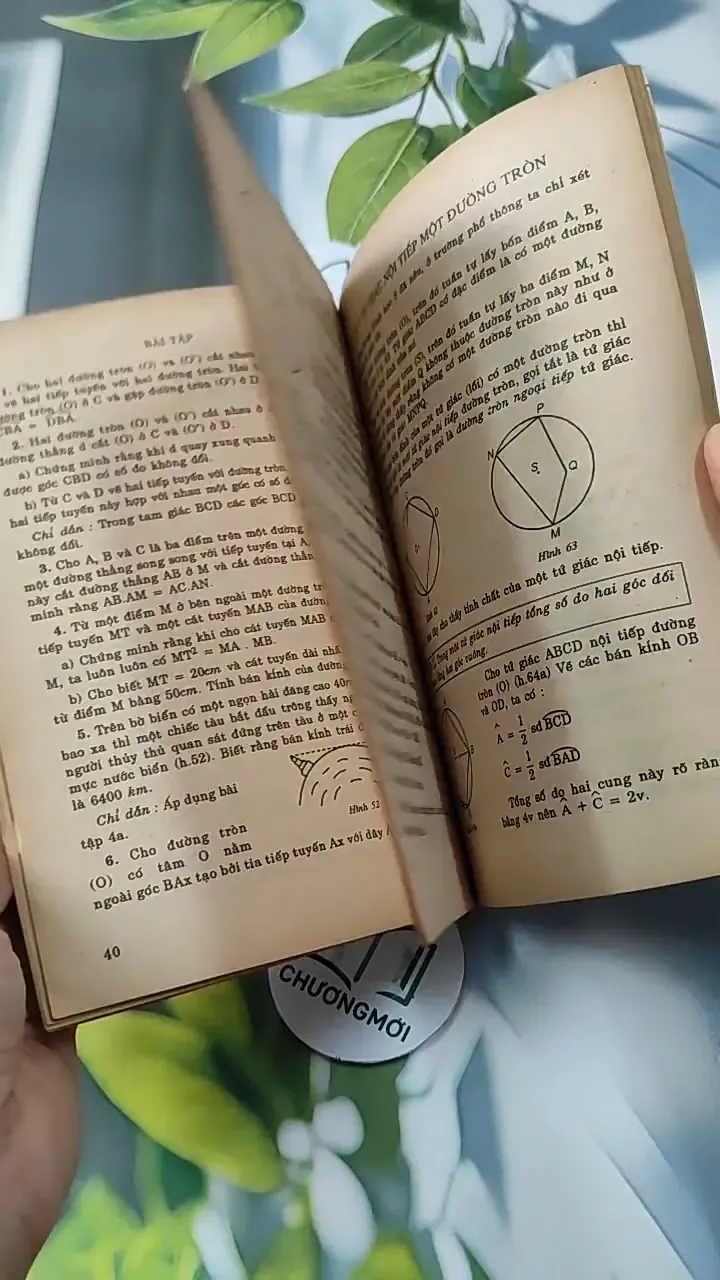 BÀI TẬP
1. Cho hai đường tròn (O) và (O') cắt nhau
vẽ hai tiếp tuyến với hai đường tròn. Hai
đường tròn (O) ở C và gặp đường tròn (O') ở D
CBA = DBA.
2. Hai đường tròn (O) và (O') cắt nhau ở
đường thẳng d cắt (O) ở C và (O') ở D.
a) Chứng minh rằng khi d quay xung quanh
được góc CBD có số đo không đổi.
b) Từ C và D vẽ hai tiếp tuyến với đường tròn,
hai tiếp tuyến này hợp với nhau một góc có số đ
Chỉ dẫn : Trong tam giác BCD các góc BCD
không đổi.
3. Cho A, B và C là ba điểm trên một đường
một đường thẳng song song với tiếp tuyến tại A.
này cắt đường thẳng AB ở M và cắt đường thẳn
minh rằng AB.AM = AC.AN.
4. Từ một điểm M ở bên ngoài một đường tr
tiếp tuyến MT và một cát tuyến MAB của đườn
a) Chứng minh rằng khi cho cát tuyến MAB
M, ta luôn luôn có MT² = MA . MB.
b) Cho biết MT = 20cm và cát tuyến dài nhấ
từ điểm M bằng 50cm. Tính bán kính của đườn
5. Trên bờ biển có một ngọn hải đăng cao 40m
bao xa thì một chiếc tàu bắt đầu trông thấy ng
người thủy thủ quan sát đứng trên tàu ở một c
mực nước biển (h.52). Biết rằng bán kính trái đ
là 6400 km.
Chỉ dẫn : Áp dụng bài
tập 4a.
Hình 52
6. Cho đường tròn
(O) có tâm O nằm
ngoài góc BAx tạo bởi tia tiếp tuyến Ax với dây
40
NỘI TIẾP MỘT ĐƯỜNG TRÒN
ở trường phổ thông ta chỉ xét
(O), trên đó tuần tự lấy bốn điểm A, B,
Tứ giác ABCD có đặc điểm là có một đường
(S), trên đó tuần tự lấy ba điểm M, N
Q không thuộc đường tròn này như ở
không có một đường tròn nào đi qua
giác MNPQ.
của một tứ giác (lồi) có một đường tròn thì
tứ giác nội tiếp đường tròn, gọi tắt là tứ giác
đường tròn đó gọi là đường tròn ngoại tiếp tứ giác.
P
N
S
Q
M
Hình 63
D
cho thấy tính chất của một tứ giác nội tiếp.
Trong một tứ giác nội tiếp tổng số đo hai góc đối
bằng hai góc vuông.
Cho tứ giác ABCD nội tiếp đường
tròn (O) (h.64a) Vẽ các bán kính OB
và OD, ta có :
Â = 1/2 sđ BCD
Ĉ = 1/2 sđ BAD
Tổng số đo hai cung này rõ ràn
bằng 4v nên Â + Ĉ = 2v.
CHƯƠNGMỚI